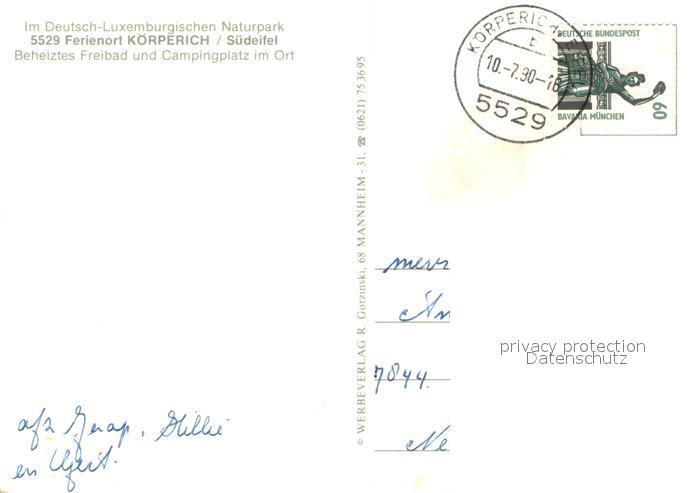 Im Deutsch-Luxemburgischen Naturpark
5529 Ferienort KÖRPERICH / Südeifel
Beheiztes Freibad und Campingplatz im Ort
© WERBEVERLAG R. Gorzinski, 68 MANNHEIM - 31, ☎ (0621) 753695
KÖRPERICH
10.-7.90-16
5529
DEUTSCHE BUNDESPOST
BAVARIA MÜNCHEN
60
mevr
An
7844
Ne
privacy protection
Datenschutz
afz
en